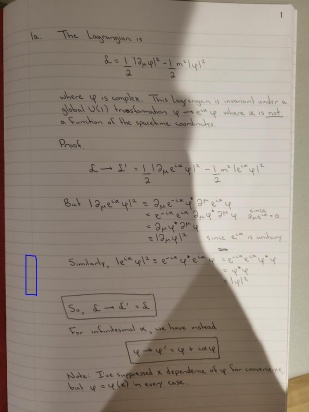 1
1a. The Lagrangian is
L = 1/2 |∂μφ|² - 1/2 m²|φ|²
where φ is complex. This Lagrangian is invariant under a
global U(1) transformation φ → e^{iα}φ where α is not
a function of the spacetime coordinates.
Proof
L → L' = 1/2 |∂μ e^{iα}φ|² - 1/2 m²|e^{iα}φ|²
But |∂μ e^{iα}φ|² = ∂μ e^{-iα}φ* ∂^μ e^{iα}φ
= e^{-iα}e^{iα} ∂μφ* ∂^μφ since ∂μe^{iα}=0
= ∂μφ* ∂^μφ
= |∂μφ|² since e^{iα} is unitary
Similarly, |e^{iα}φ|² = e^{-iα}φ* e^{iα}φ = e^{-iα}e^{iα}φ*φ
= φ*φ
= |φ|²
So, L → L' = L
For infinitesmal α, we have instead
φ → φ' = φ + iαφ
Note: I've suppressed x dependence of φ for convenience
but φ = φ(x) in every case.